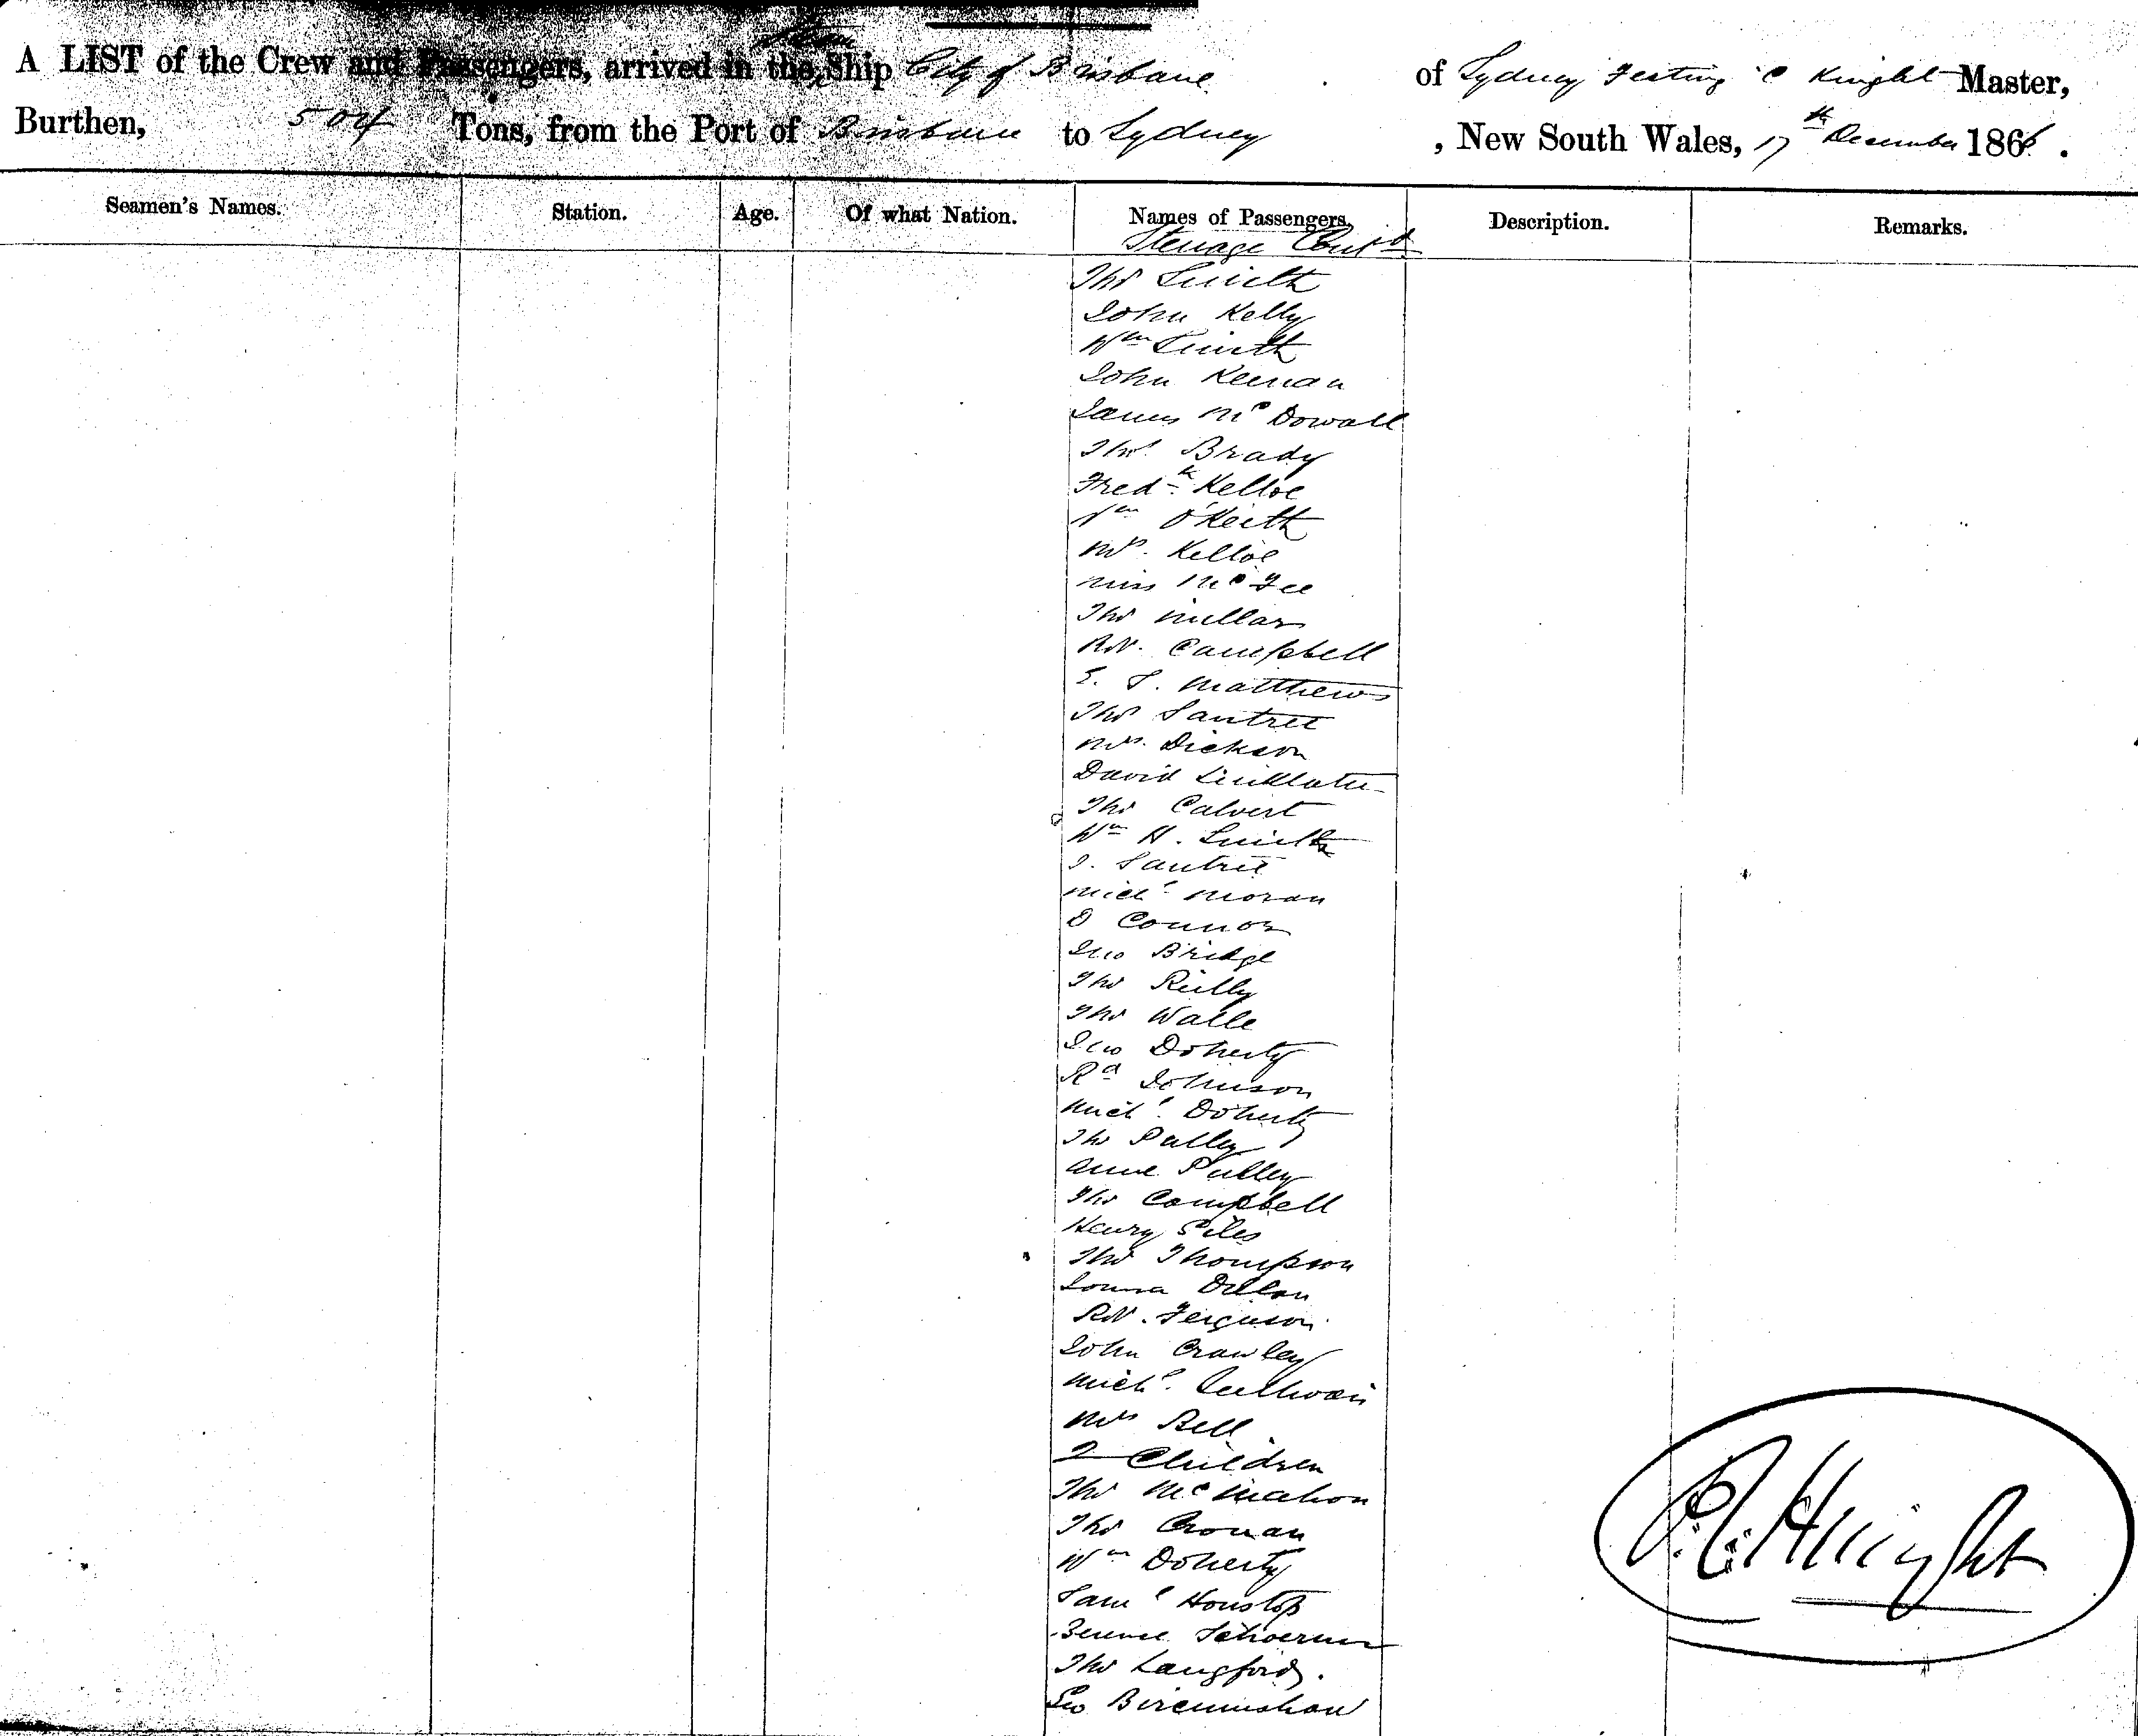 A LIST of the Crew and Passengers, arrived in the Steam Ship City of Brisbane of Sydney Festing C Knight Master,
Burthen, 504 Tons, from the Port of Brisbane to Sydney, New South Wales, 17th December 1866.
Seamen's Names. Station. Age. Of what Nation. Names of Passengers, Description. Remarks.
Steerage Cont'd
Thos Smith
John Kelly
Wm Smith
John Keenan
James McDowall
Thos Brady
Fredk Kelloe
Wm O'Keith
Mrs. Kelloe
Miss McGee
Thos Millar
Rob. Campbell
E. S. Matthews
Thos Santree
Mrs. Dickson
David Linklater
Thos Calvert
Wm H. Smith
J. Santree
Michl Moran
D Connor
Jno Bridge
Thos Reilly
Thos Walle
Jno Doherty
Rd Johnson
Michl. Doherty
Thos Pulley
Anne Pulley
Thos Campbell
Henry Giles
Thos Thompson
Dillon
Rob. Ferguson
John Crawley
Michl. Sullivan
Mrs Bell
2 Children
Thos McMahon
Thos Cronan
Wm Doherty
Saml
Thos Langford.
Geo Bircumshaw
P.C. Knight